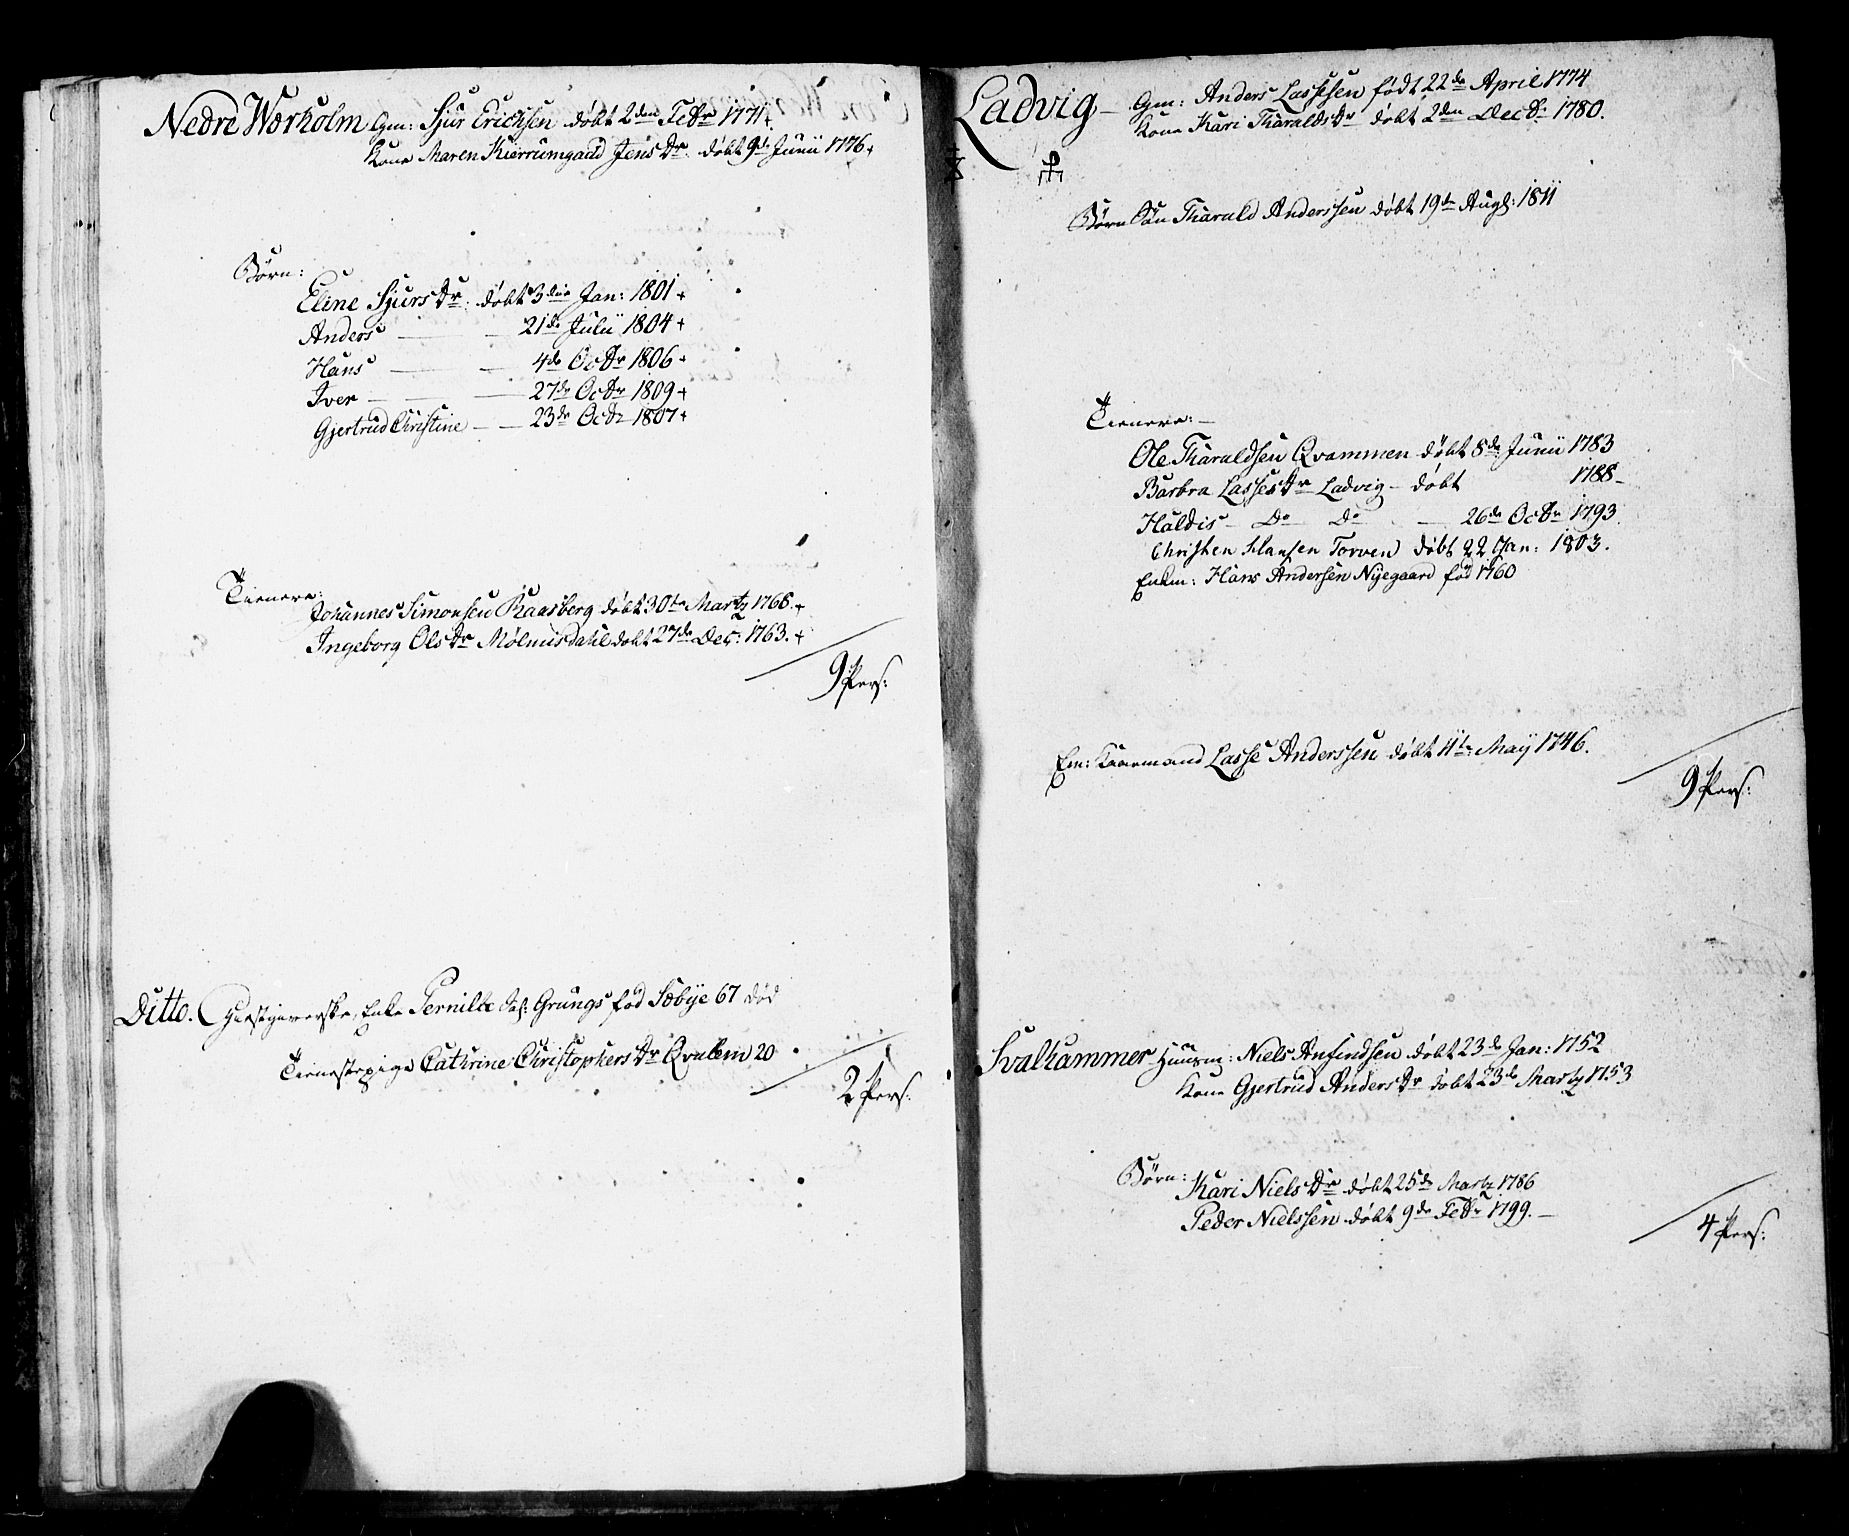 Nedre Wærholm Gm: Sjur Erichsen døbt 2den Febr 1771+
Kone Maren Kierrumgaard Jens Dr. døbt 9de Junii 1776+
Børn:
Eline Sjurs Dr. døbt 3die Jan: 1801+
Anders — — 21de Julii 1804+
Hans — — 4de Octbr 1806+
Iver — — 27de Octbr 1809+
Gjertrud Christine — — 23de Octbr 1807+
Tienere:
Johannes Simonsen Raasberg døbt 30te Martz 1768.+
Ingeborg Ols Dr Mølmisdahl døbt 27de Dec: 1763.+
9 Pers:
Ditto. Giestgiverske, Enke Pernille Grungs fød Sæbÿe 67 død
Tienestepige Cathrine Christophers Dr Qvalem 20
2 Pers:
Ladvig — Gm: Anders Lassesen født 22de April 1774
Kone Kari Tharalds Dr døbt 2den Decbr 1780.
Børn Søn Tharald Anderssen døbt 19de Aug: 1811
Tienere: —
Ole Tharaldsen Qvammen døbt 8de Junii 1783
Barbra Lasses Dr Ladvig — døbt 1788 —
Haldis — Do Do — 26de Octbr 1793
Christen Hansen Torven døbt 22 Jan: 1803.
Enkm: Hans Andersen Nÿegaard fød 1760
Em: Kaarmand Lasse Anderssen døbt 11te Maÿ 1746.
9 Pers:
Svalhammer Huusm: Niels Anfindsen døbt 23de Jan: 1752
Kone Gjertrud Anders Dr døbt 23de Martz 1753
Børn: Kari Niels Dr døbt 25de Martz 1786
Peder Nielssen døbt 9de Febr 1799. —
4 Pers: